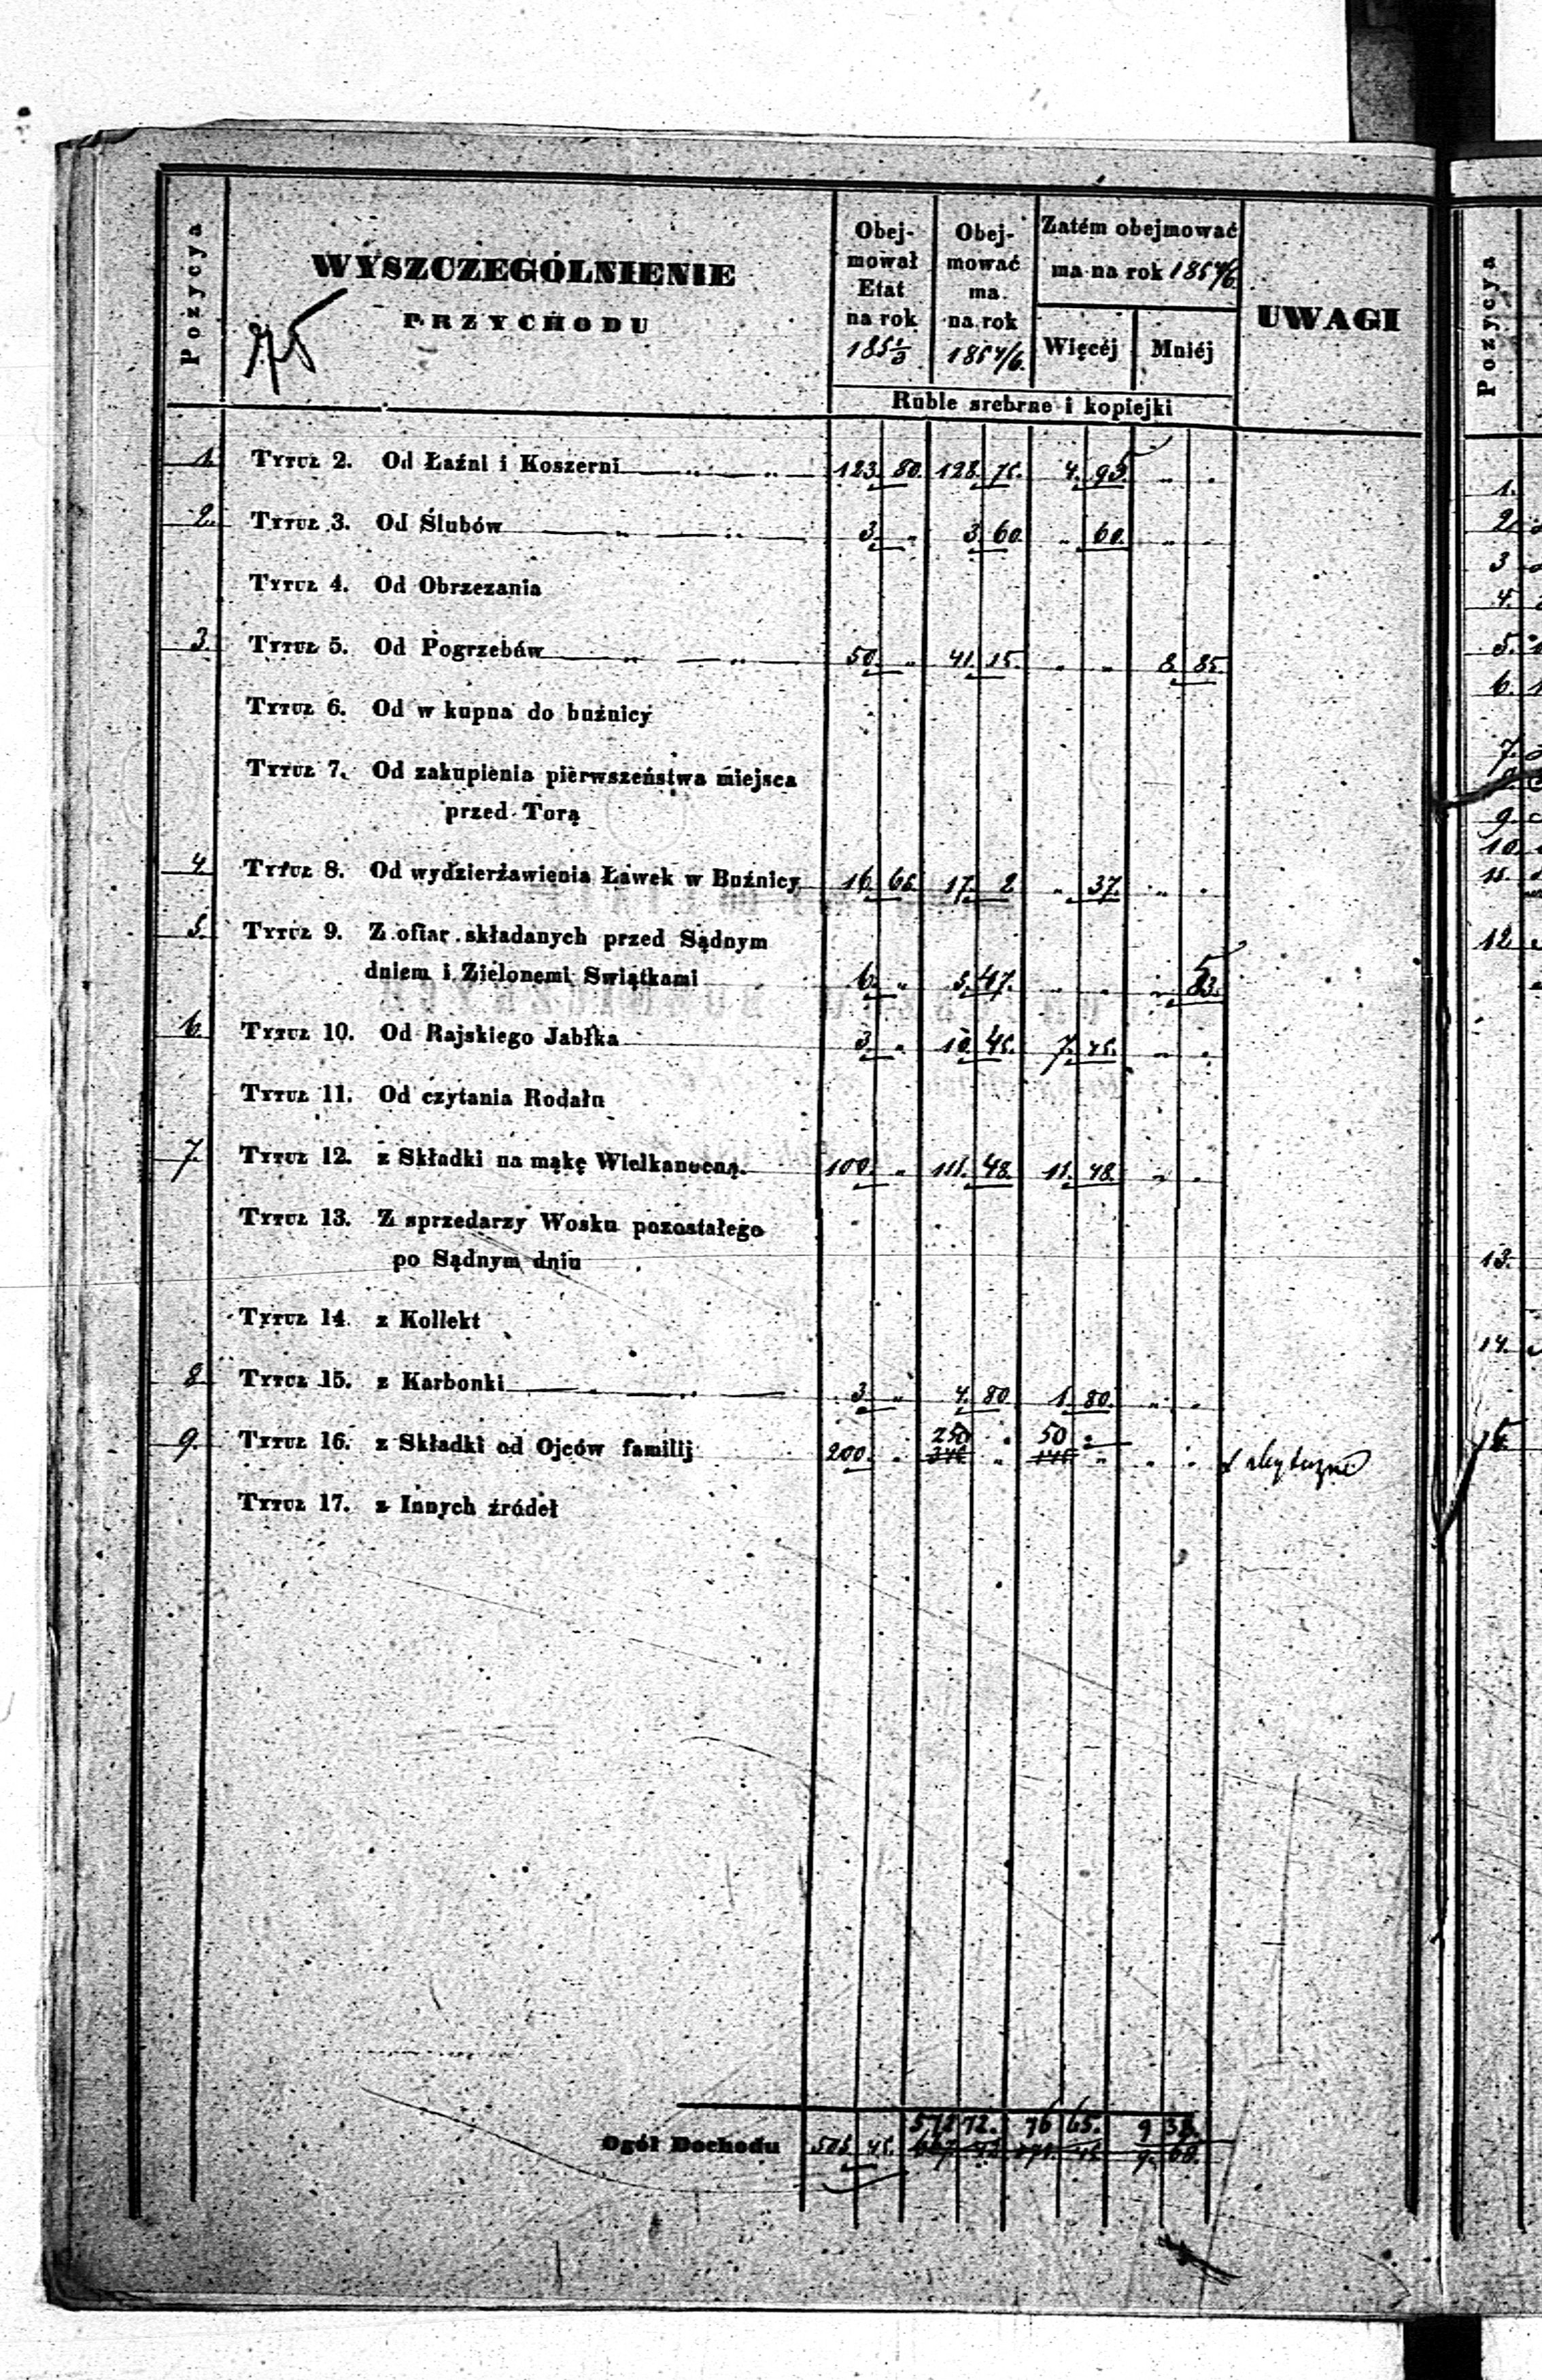 Pozycya
WYSZCZEGÓLNIENIE
PRZYCHODU
Obej-
mował
Etat
na rok
185 1/3
Obej-
mować
ma
na rok
185 4/6.
Zatém obejmować
ma na rok 185 4/6.
Więcéj Mniéj
UWAGI
Ruble srebrne i kopiejki
1. Tytuł 2. Od Łaźni i Koszerni 123. 80. 128. 75. 4. 95. „ .
2. Tytuł 3. Od Ślubów 3. „ 3. 60. „ 60. „ .
Tytuł 4. Od Obrzezania
3. Tytuł 5. Od Pogrzebów 50. „ 41. 15. „ „ 8. 85.
Tytuł 6. Od w kupna do buźnicy
Tytuł 7. Od zakupienia pierwszeństwa miejsca
przed Torą
4. Tytuł 8. Od wydzierżawienia Ławek w Buźnicy 16. 65. 17. 2 „ 37. „ .
5. Tytuł 9. Z ofiar składanych przed Sądnym
dniem i Zielonemi Swiątkami 6. „ 5. 47. „ „ „ 53.
6. Tytuł 10. Od Rajskiego Jabłka 3. „ 10. 45. 7. 45. „ .
Tytuł 11. Od czytania Rodału
7. Tytuł 12. z Składki na mąkę Wielkanocną. 100. „ 111. 48. 11. 48. „ .
Tytuł 13. Z sprzedarzy Wosku pozostałego
po Sądnym dniu
Tytuł 14. z Kollekt
8 Tytuł 15. z Karbonki 3. „ 4. 80. 1. 80. „ .
250 . 50 .
9. Tytuł 16. z Składki od Ojców familij 200. „
Tytuł 17. z Innych źródeł
572 72. 76 65. 9 38.
Ogół Dochodu 505. 45. 9. 68.
Pozycya
1.
2.
3
4.
5.
6.
7.
9.
10.
11.
12.
13.
14.